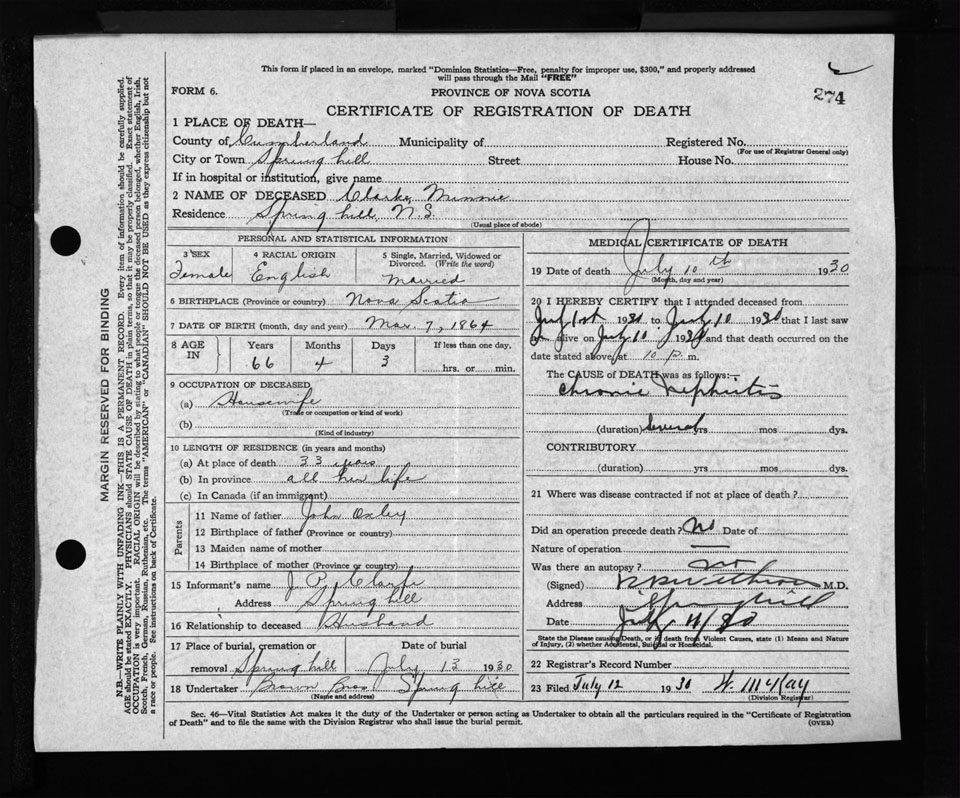 This form if placed in an envelope, marked "Dominion Statistics—Free, penalty for improper use, $300," and properly addressed
will pass through the Mail "FREE"
FORM 6.
PROVINCE OF NOVA SCOTIA
274
CERTIFICATE OF REGISTRATION OF DEATH
1 PLACE OF DEATH—
County of Cumberland Municipality of Registered No.
(For use of Registrar General only)
City or Town Spring hill Street House No.
If in hospital or institution, give name
2 NAME OF DECEASED Clarke, Minnie
Residence Spring hill, N.S.
(Usual place of abode)
PERSONAL AND STATISTICAL INFORMATION
3 SEX 4 RACIAL ORIGIN 5 Single, Married, Widowed or
Divorced. (Write the word)
Female English Married
6 BIRTHPLACE (Province or country) Nova Scotia
7 DATE OF BIRTH (month, day and year) Mar. 7, 1864
8 AGE IN Years Months Days If less than one day,
66 4 3 hrs. or min.
9 OCCUPATION OF DECEASED
(a) Housewife
(Trade or occupation or kind of work)
(b)
(Kind of industry)
10 LENGTH OF RESIDENCE (in years and months)
(a) At place of death 33 years
(b) In province all her life
(c) In Canada (if an immigrant)
Parents
11 Name of father John Oxley
12 Birthplace of father (Province or country)
13 Maiden name of mother
14 Birthplace of mother (Province or country)
15 Informant's name J. P. Clarke
Address Spring hill
16 Relationship to deceased Husband
17 Place of burial, cremation or Date of burial
removal Spring hill July 13 1930
18 Undertaker Brown Bros Spring hill
(Name and address)
MEDICAL CERTIFICATE OF DEATH
19 Date of death July 10th 1930
(Month, day and year)
20 I HEREBY CERTIFY that I attended deceased from
July 1st 1930 to July 10 1930 that I last saw
alive on July 10 1930 and that death occurred on the
date stated above, at 10 p.m.
The CAUSE of DEATH was as follows:—
Chronic Nephritis
(duration) Several yrs mos dys.
CONTRIBUTORY
(duration) yrs. mos. dys.
21 Where was disease contracted if not at place of death?
Did an operation precede death? No Date of
Nature of operation —
Was there an autopsy? no
(Signed) M.D.
Address Springhill
Date July 11/30
State the Disease causing Death, or if death from Violent Causes, state (1) Means and Nature
of Injury, (2) whether Accidental, Suicidal or Homicidal.
22 Registrar's Record Number
23 Filed July 12 1930
(Division Registrar)
Sec. 46—Vital Statistics Act makes it the duty of the Undertaker or person acting as Undertaker to obtain all the particulars required in the "Certificate of Registration
of Death" and to file the same with the Division Registrar who shall issue the burial permit. (OVER)
MARGIN RESERVED FOR BINDING
N.B.—WRITE PLAINLY WITH UNFADING INK—THIS IS A PERMANENT RECORD. Every item of information should be carefully supplied.
AGE should be stated EXACTLY. PHYSICIANS should STATE CAUSE OF DEATH in plain terms, so that it may be properly classified. Exact statement of
OCCUPATION is very important. RACIAL ORIGIN will be described by stating to what people or tongue the deceased person belonged, whether English, Irish,
Scotch, French, German, Russian, Ruthenian, etc. The terms "AMERICAN" or "CANADIAN" SHOULD NOT BE USED as they express citizenship but not
a race or people. See instructions on back of Certificate.